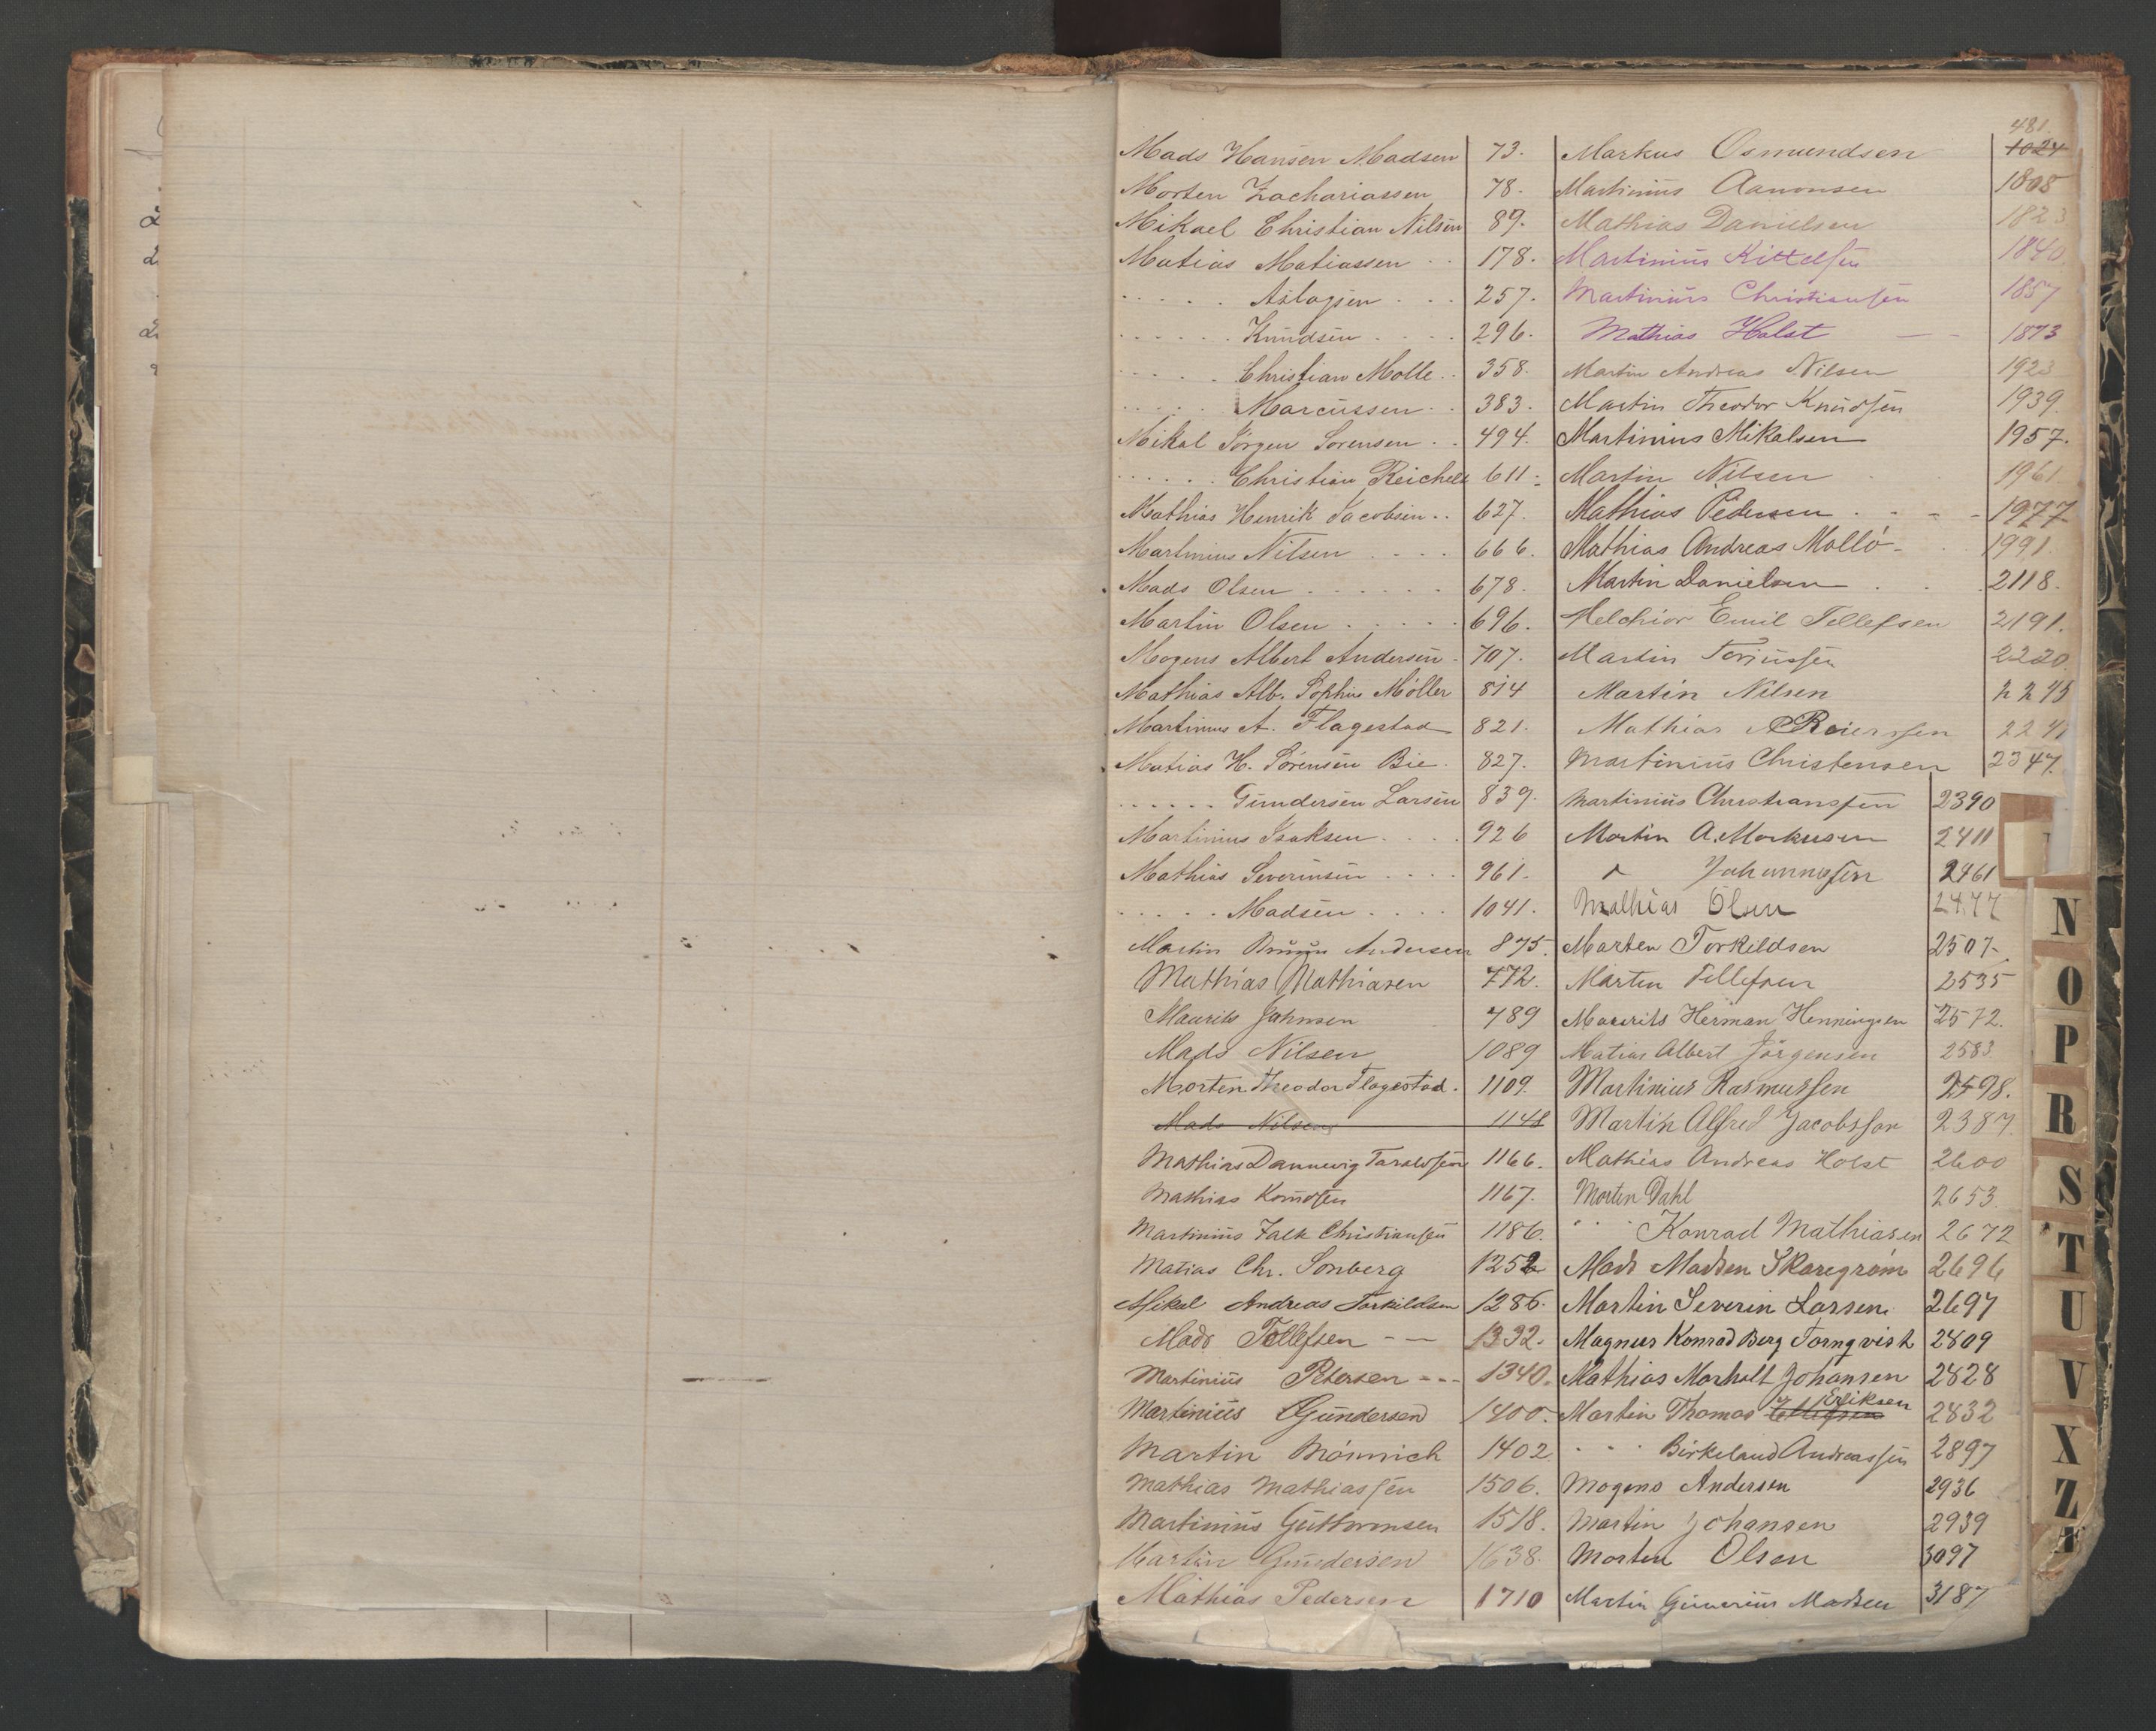 Mads Hansen Madsen 73.
Morten Zachariassen 78.
Mikael Christian Nilsen 89.
Matias Matiassen . . 178.
. . . . . Aslagsen . . . 257.
. . . . . . Knudsen . . . . 296.
. . . . . Christian Molle . . 358.
. . . . . Marcussen . . 383.
Mikal Jörgen Sörensen . . 494.
. . . . . . Christian Reichelt 611.
Mathias Henrik Jacobsen . . 627.
Martinius Nilsen . . . . 666.
Mads Olsen . . . . . . 678.
Martin Olsen . . . . . 696.
Mogens Albert Andersen . 707.
Mathias Alb. Sophus Möller 814
Martinius A. Flagestad 821.
Matias H. Sörensen Bie . 827.
. . . . . . Gundersen Larsen 839.
Martinius Isaksen . . . . 926
Mathias Severinsen . . . . 961.
. . . . . Madsen . . . . 1041.
Martin Bruun Andersen 875.
Mathias Mathiasen 772.
Maurits Johnsen 789
Mads Nilsen 1089
Morten Theodor Flagestad . 1109.
Mads Nilsen 1148
Mathias Dannevig Taraldsen 1166.
Mathias Knudsen 1167.
Martinius Falk Christiansen 1186.
Matias Chr. Sonberg 1252
Mikal Andreas Torkildsen 1286.
Mads Tellefsen - - 1332.
Martinius Petersen - - - 1340.
Martinius Gundersen 1400.
Martin Mönnich 1402
Mathias Mathiassen 1506.
Martinius Guttormsen 1518.
Martin Gundersen 1638.
Mathias Pedersen 1710
481.
Markus Osmundsen 1024
Martinius Aanonsen 1808
Mathias Danielsen 1823
Martinius Kittelsen 1840
Martinius Christiansen 1857
Mathias Holst 1873
Martin Andreas Nilsen 1923
Martin Theodor Knudsen 1939.
Martinius Mikalsen 1957.
Martin Nilsen 1961.
Mathias Pedersen . - - - 1977
Mathias Andreas Molló - 1991.
Martin Danielsen . . . 2118.
Melchior Emil Tellefsen 2191.
Martin Terjussen 2220.
Martin Nilsen
Mathias Reierssen
Martinius Christensen 2347.
Martinius Christianssen 2390
Martin A. Markusen 2411
Johannessen 2461
Mathias Olsen 2477
Morten Torkildsen 2507.
Martin Tellefsen 2535
Maurits Herman Henningsen 2572.
Matias Albert Jörgensen 2583
Martinius Rasmussen 2598.
Martin Alfred Jacobssen 2387.
Mathias Andreas Holst 2600
Morten Dahl 2653
" " Konrad Mathiasen 2672
Mads Madsen Skaregröm 2696
Martin Severin Larsen 2697
Magnus Konrad Berg Tornqvist 2809
Mathias Marholt Johansen 2828
Eriksen
Martin Thomas Tellefsen 2832
" " " Birkeland Andreassen 2897
Mogens Andersen 2936
Martin Johansen 2939
Morten Olsen 3097
Martin Madsen 3187
N
O
P
R
S
T
U
V
X
Z
Æ